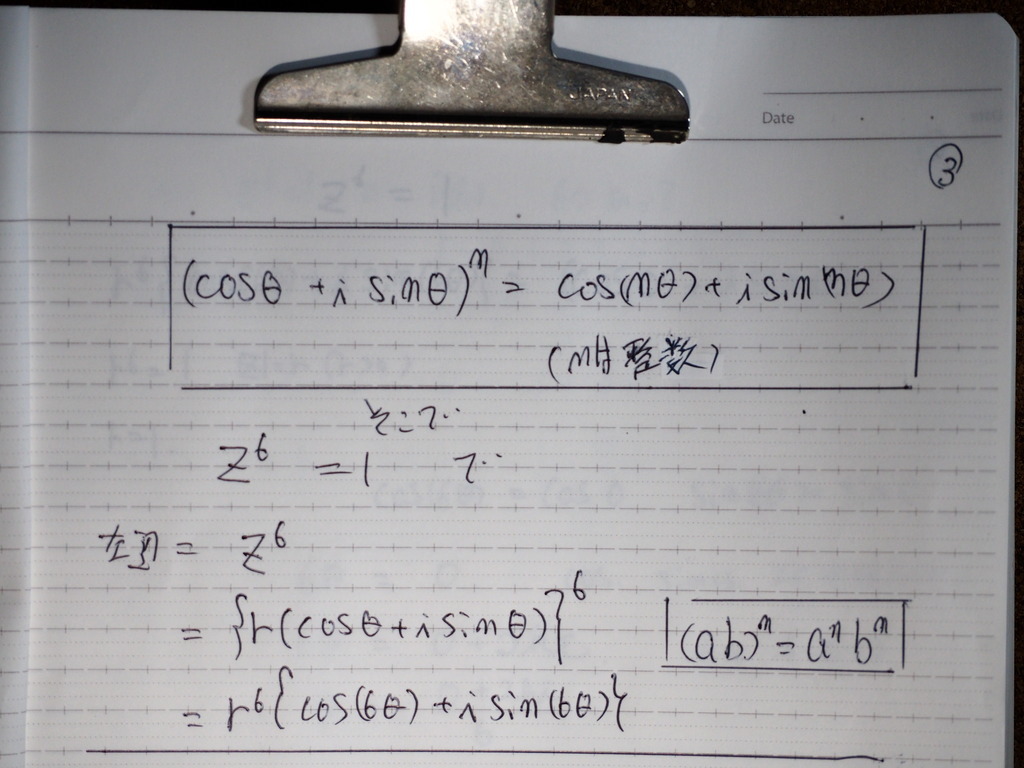 JAPAN
Date
③
(cosθ + i sinθ)ⁿ = cos(nθ) + i sin(nθ)
(nは整数)
そこで
z⁶ = 1 で
左辺 = z⁶
= {r(cosθ + i sinθ)}⁶
(ab)ⁿ = aⁿbⁿ
= r⁶{cos(6θ) + i sin(6θ)}